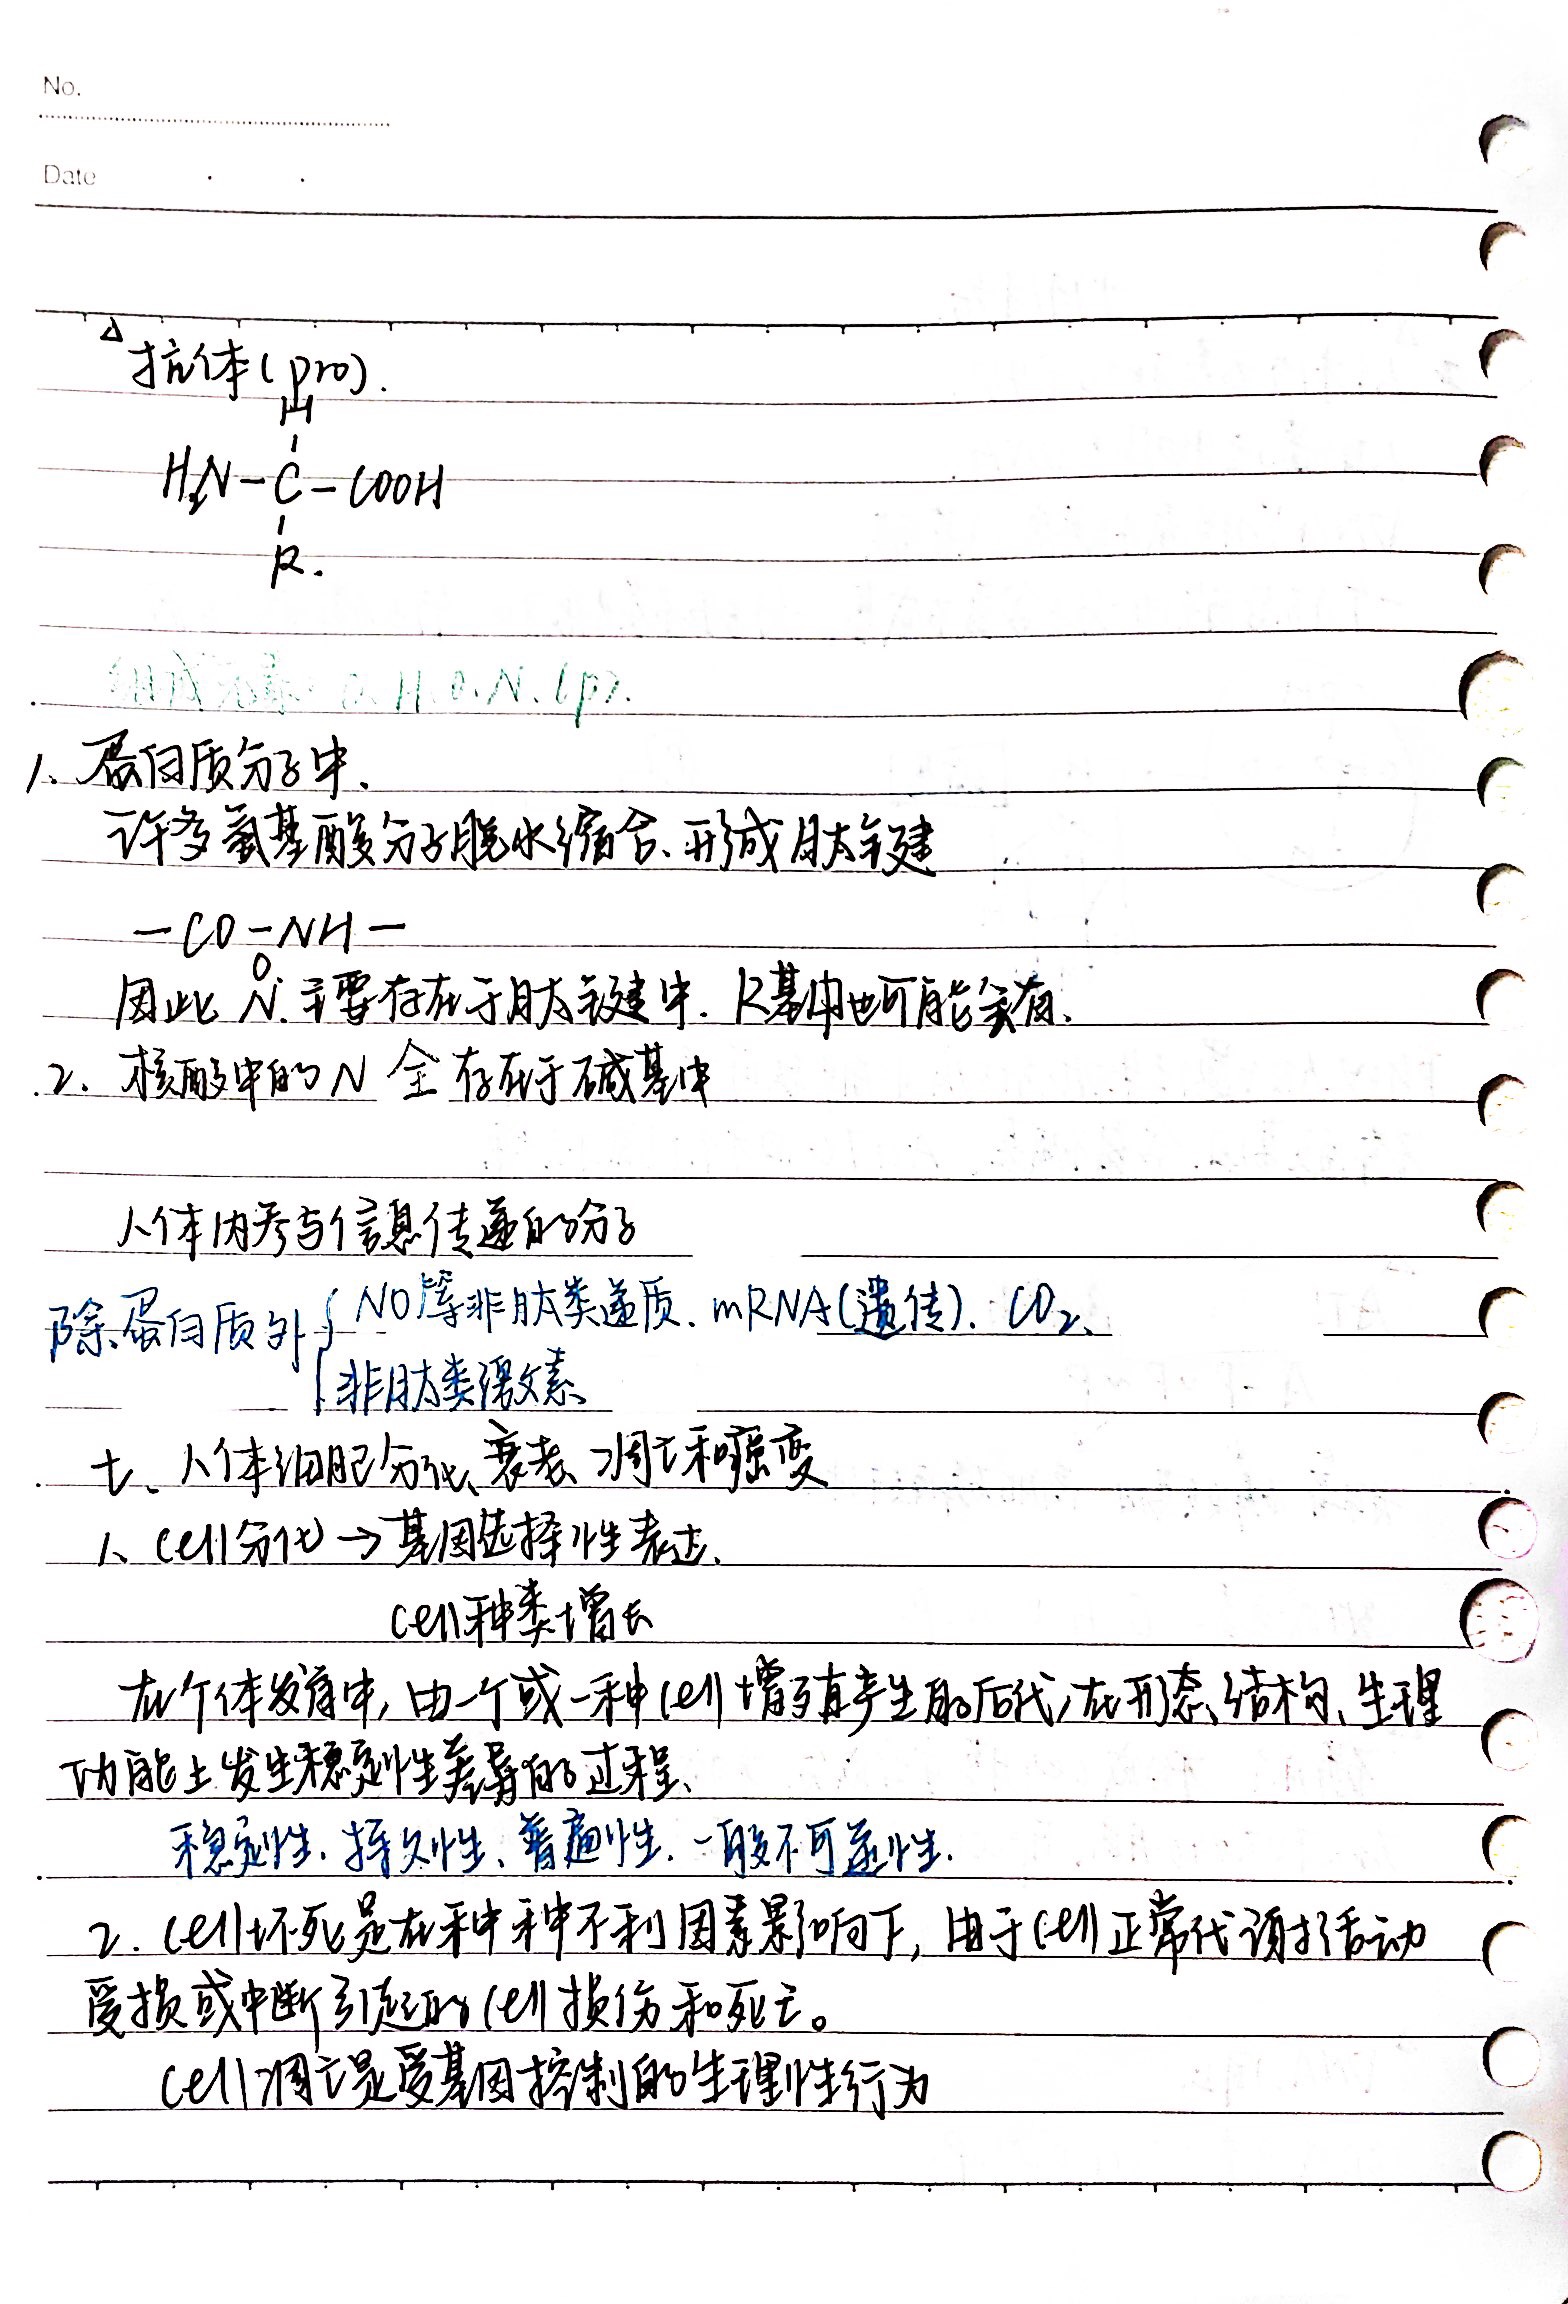 No.
Date
△抗体(pro).
H
H₂N-C-COOH
R.
组成元素: C.H.O.N.(p).
1、蛋白质分子中、
许多氨基酸分子脱水缩合、形成肽键
-CO-NH-
因此 N.主要存在于肽键中. R基中也可能含有、
2、核酸中的N 全存在于碱基中
人体内参与信息传递的分子
除蛋白质外{NO等非肽类递质.mRNA(遗传).CO₂、
非肽类激素、
七、人体细胞分化、衰老、凋亡和癌变
1、cell分化→基因选择性表达、
cell种类增长
在个体发育中,由一个或一种cell增殖产生的后代,在形态、结构、生理
功能上发生稳定性差异的过程、
稳定性.持久性、普遍性.一般不可逆性.
2.cell坏死是在种种不利因素影响下,由于cell正常代谢活动
受损或中断引起的cell损伤和死亡。
cell凋亡是受基因控制的生理性行为